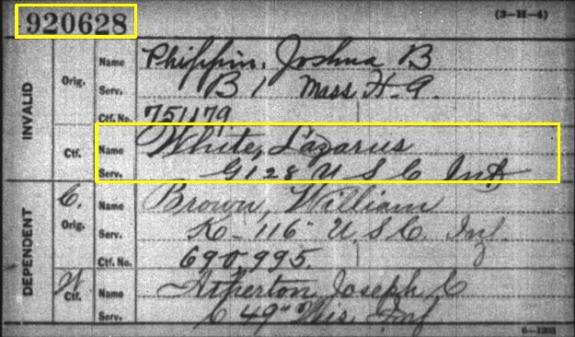 920628 (3-H-4)
INVALID Orig. Name Phippin, Joshua B
Serv. B 1 Mass H. A.
Ctf. No. 751179
Ctf. Name White, Lazarus
Serv. G 128 U S C Inf
DEPENDENT C. Orig. Name Brown, William
Serv. K - 116" U. S. C. Inf.
Ctf. No. 690,995.
W Ctf. Name Atherton Joseph C
Serv. C 49" Wis. Inf